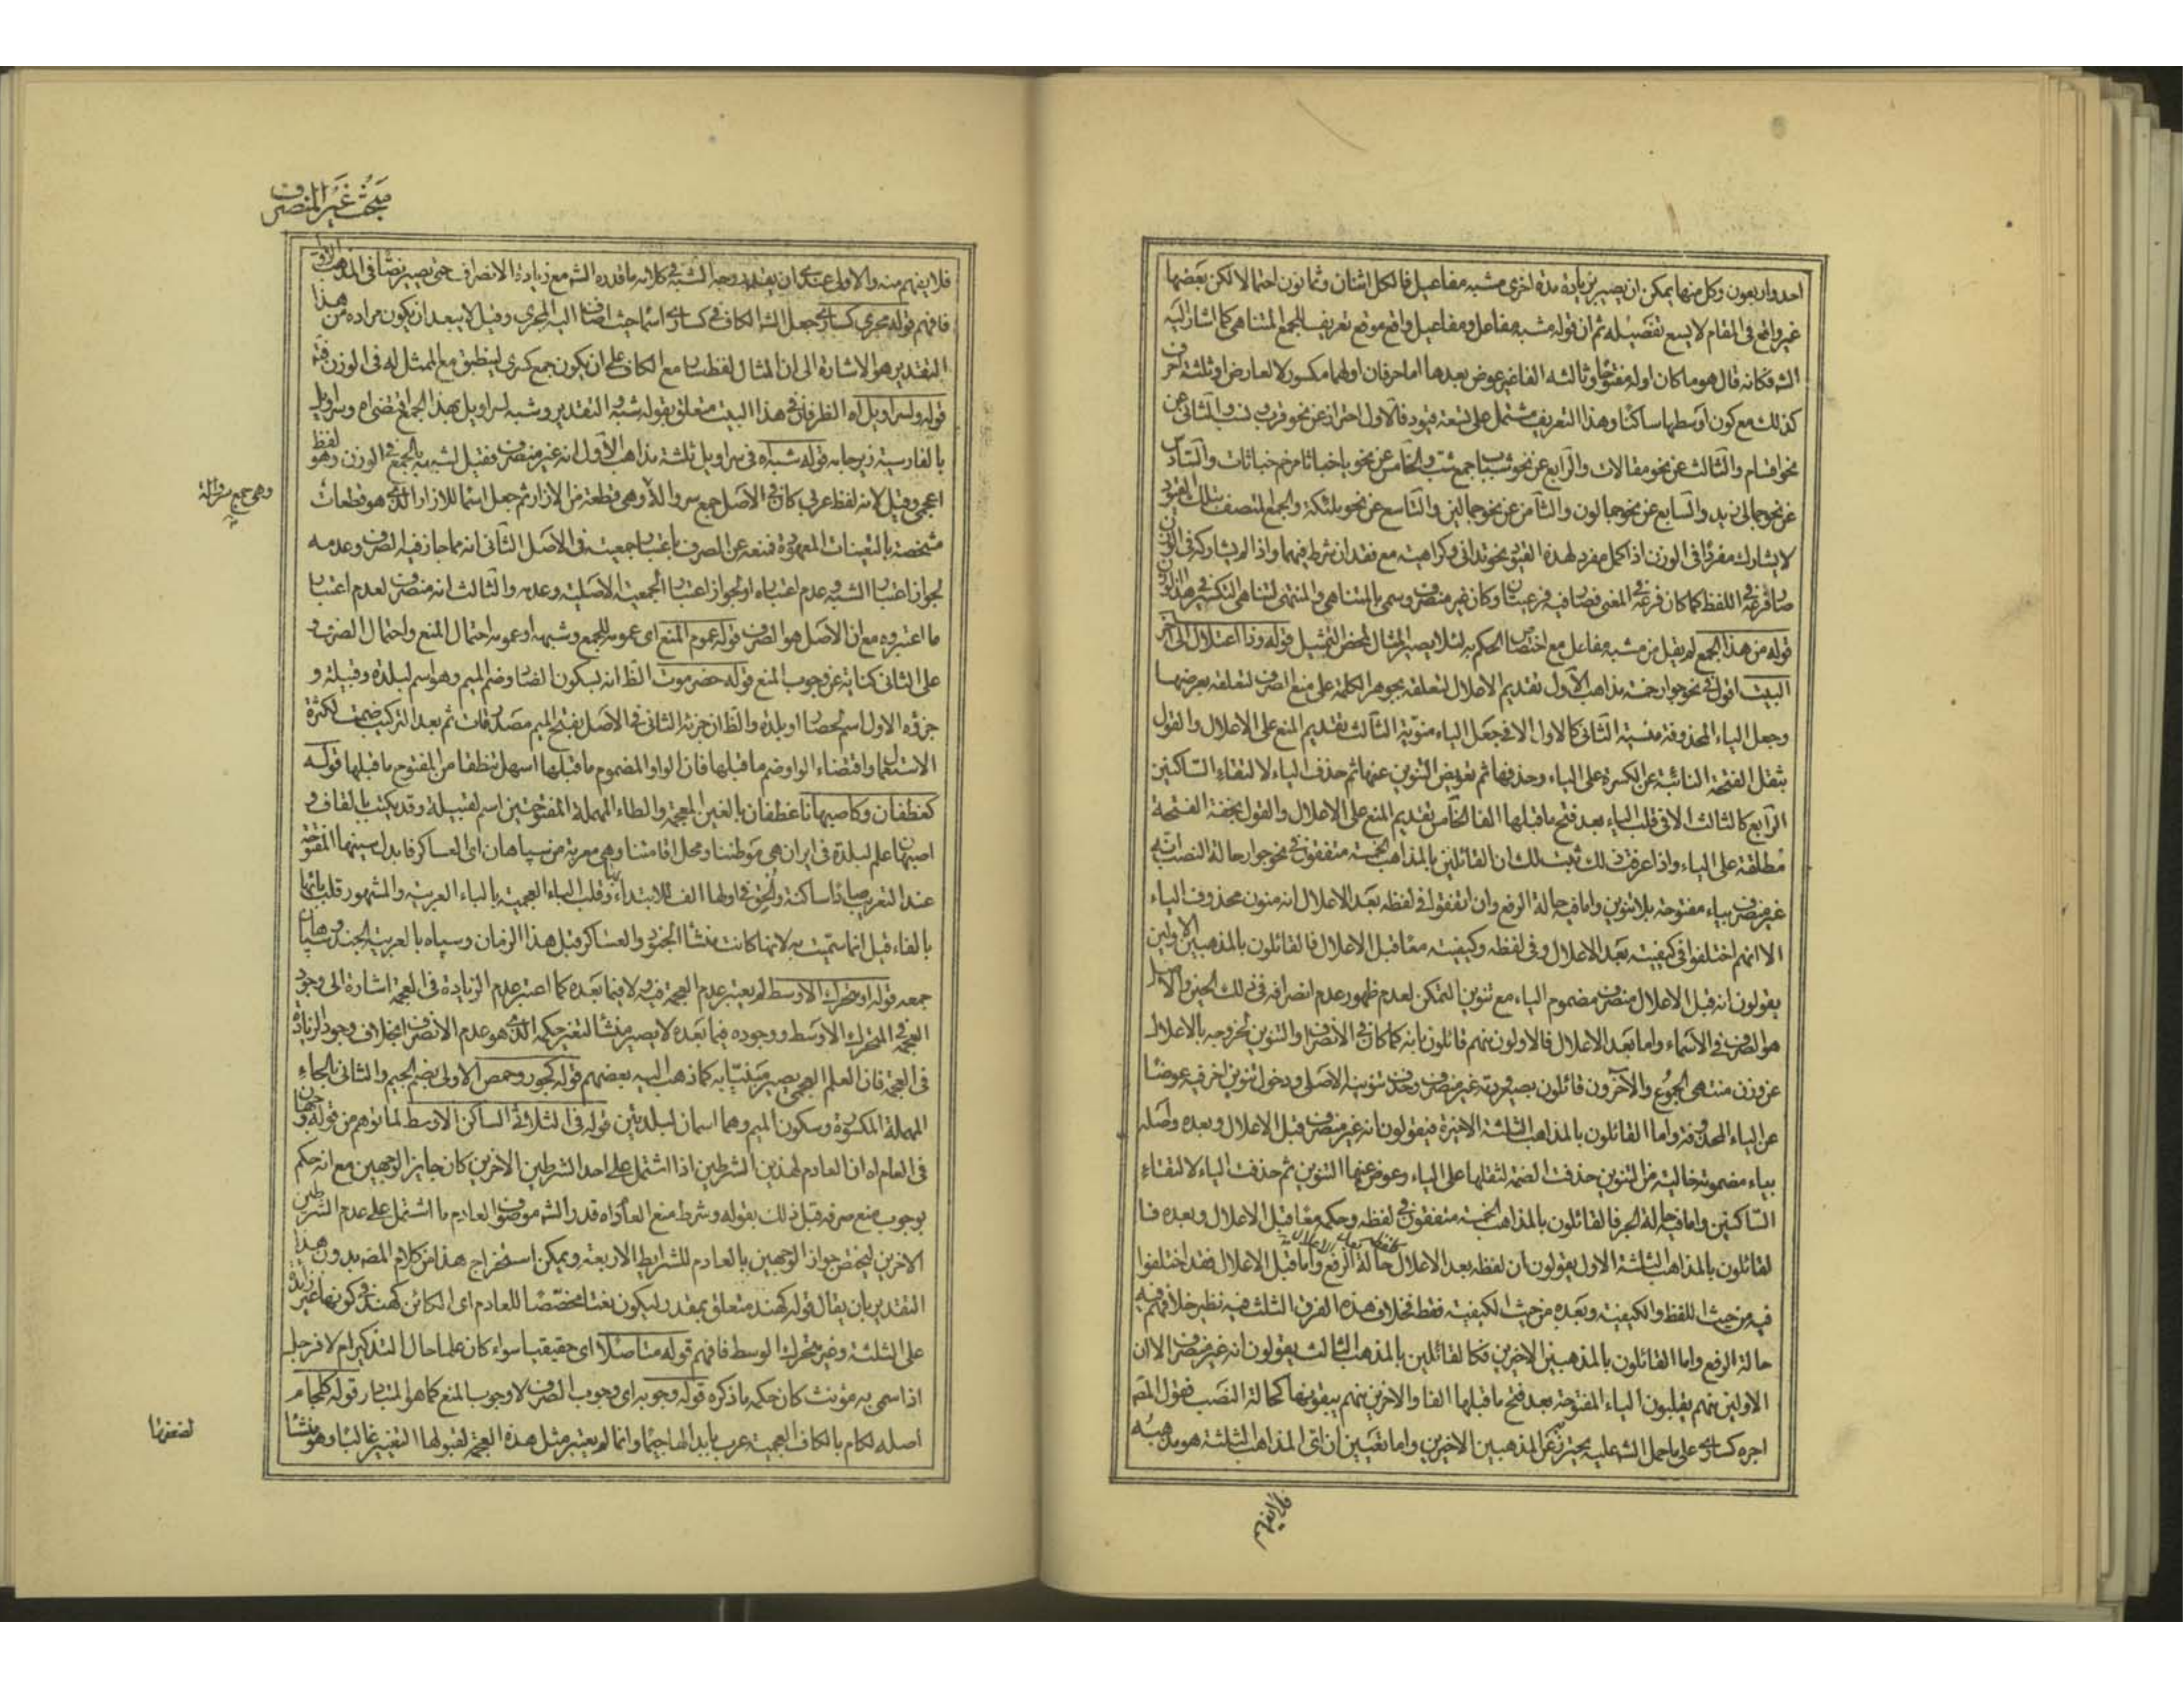 احد واربعون وكل منها يمكن ان يصير بزيادة مدة اخرى مشبه مفاعيل فالكل اثنان وثمانون احتمالا لكن بعضها
غير واقع فى المقام لا يسع تفصيله ثم ان قوله مشبه مفاعل ومفاعيل واقع موقع تعريف الجمع المتناهى كما اشار اليه
الش فكانه قال هو ما كان اوله مفتوحا وثالثه الفا غير عوض بعدها اما حرفان اولهما مكسور لا لعارض او ثلثة احرف
كذلك مع كون اوسطها ساكنا وهذا التعريف مشتمل على تسعة قيود فالاول احتراز عن نحو والثانى عن
نحو اقسام والثالث عن نحو مقالات والرابع عن نحو جمع والخامس عن نحو والسادس
عن نحو جمالى زيد والسابع عن نحو جمالون والثامن عن نحو جمالين والتاسع عن نحو ملئكة والجمع المتصف بتلك القيود
لا يشارك مفردا فى الوزن اذا كمل مفرد لهذه القيود نحو تدانى وكراهية مع فقدان شرط فيهما واذا لم يشاركه فى الوزن
صار فرعه فى اللفظ كما كان فرعه فى المعنى فصار فيه فرعيتان وكان غير منصرف وسمى بالمتناهى والمنتهى لتناهى التكسير
قوله من هذا الجمع لم يقل من مشبه مفاعل مع اختصاص الحكم به لئلا يصير المثال لمحض التمثيل قوله وذا اعتلال الى آخر
البيت اقول فى نحو جوار خمسة مذاهب الاول تقديم الاعلال لتعلقه بجوهر الكلمة على منع الصرف لتعلقه بعرضها
وجعل الياء المحذوفة منسية الثانى كالاول الا فى جعل الياء منوية الثالث بتقديم المنع على الاعلال والقول
بثقل الفتحة النائبة عن الكسرة على الياء وحذفها ثم تعويض التنوين عنها ثم حذف الياء لالتقاء الساكنين
الرابع كالثالث الا فى قلب الياء بعد فتح ما قبلها الفا الخامس تقديم المنع على الاعلال والقول بخفة الفتحة
مطلقة على الياء واذا عرفت ذلك ثبت لك ان القائلين بالمذاهب الخمسة متفقون فى نحو جوار حالة النصب انه
غير منصرف بياء مفتوحة بلا تنوين واما فى حالة الرفع وان اتفقوا فى لفظه بعد الاعلال انه منون محذوف الياء
الا انهم اختلفوا فى كيفيته بعد الاعلال وفى لفظه وكيفيته معا قبل الاعلال فالقائلون بالمذهبين الاولين
يقولون انه قبل الاعلال منصرف مضموم الياء مع تنوين التمكن لعدم ظهور عدم انصرافه فى ذلك الحين والاصل
هو الصرف فى الاسماء واما بعد الاعلال فالاولون منهم قائلون بانه كما كان فى الانصراف والتنوين لخروجه بالاعلال
عن وزن منتهى الجموع والآخرون قائلون بصيرورته غير منصرف وحذف تنوينه الاصلى ودخول تنوين اخر فيه عوضا
عن الياء المحذوفة واما القائلون بالمذاهب الثلثة الاخيرة فيقولون انه غير منصرف قبل الاعلال وبعده وصله
بياء مضمومة خالية من التنوين حذفت الضمة لثقلها على الياء وعوض عنها التنوين ثم حذفت الياء لالتقاء
الساكنين واما فى حالة الجر فالقائلون بالمذاهب الخمسة متفقون فى لفظه وحكمه معا قبل الاعلال وبعده فا
لقائلون بالمذاهب الثلثة الاول يقولون ان لفظه بعد الاعلال حالة الرفع واما قبل الاعلال فقد اختلفوا
فيه من حيث اللفظ والكيفية وبعده من حيث الكيفية فقط فخلاف هذه الفرق الثلث فيه نظير خلافهم فيه
حالة الرفع واما القائلون بالمذهبين الاخرين فكالقائلين بالمذهب الثالث يقولون انه غير منصرف الا ان
الاولين منهم يقلبون الياء المفتوحة بعد فتح ما قبلها الفا والاخرين منهم يبقونها كحالة النصب فقول المص
اجره كسارى على ما حمل الش عليه يحترز عن المذهبين الاخيرين واما تعيين ان اى المذاهب الثلثة هو مذهبه
فلا يفهم
مبحث غير المنصرف
فلا يفهم منه والاولى عندى ان يقدر وجه الشبه فى كلامه ما قدره الش مع زيادة الانصراف حتى يصير نصا فى المذهب الاول
فافهم قوله مجرى كسارى جعل الش الكاف فى كسارى اسما حيث اضاف اليه المجرى وقيل لا يبعد ان يكون مراده من هذا
التقدير هو الاشارة الى ان المثال لفظ سار مع الكاف على ان يكون جمع كسرى لينطبق مع الممثل له فى الوزن فتم
قوله ولسراويل اه الظرفان فى هذا البيت متعلق بقوله شبه والتقدير وشبه لسراويل بهذا الجمع اقتضى اه وسراويل
بالفارسية زيرجامه قوله شباه فى سراويل ثلثة مذاهب الاول انه غير منصرف فقيل لشبهه بالجمع فى الوزن وهو لفظ
اعجمى وقيل لانه لفظ عربى كان فى الاصل جمع سروالة وهى قطعة من الازار ثم جعل اسما للازار الذى هو قطعات
وهى جمع سروالة
مشخصة بالتعينات المعهودة فمنعه عن الصرف باعتبار جمعيته فى الاصل الثانى انه مما جاز فيه الصرف وعدمه
لجواز اعتبار الشبه وعدم اعتباره او لجواز اعتبار الجمعية الاصلية وعدمه والثالث انه منصرف لعدم اعتبار
ما اعتبروه مع ان الاصل هو الصرف قوله عموم المنع اى عمومه للجمع وشبهه او عمومه احتمال المنع واحتمال الصرف و
على الثانى كناية عن وجوب المنع قوله حضرموت الظ انه بسكون الضاد وضم الميم وهو اسم لبلدة وقبيلة و
جزؤه الاول اسم لحصار او بلدة والظ ان جزئه الثانى فى الاصل بفتح الميم مصدر فات ثم بعد التركيب ضمت لكثرة
الاستعمال واقتضاء الواو ضم ما قبلها فان الواو المضموم ما قبلها اسهل تلفظا من المفتوح ما قبلها قوله
كغطفان وكاصبهانا غطفان بالغين المعجمة والطاء المهملة المفتوحتين اسم لقبيلة وقد يكتب بالقاف و
اصبهان علم لبلدة فى ايران هى موطننا ومحل اقامتنا وهى معربة من سپاهان اى العساكر فابدل سينها المفتوحة
عند التعريب صادا ساكنة والحق فى اولها الف للابتداء وقلب الباء العجمية بالباء العربية والمشهور قلب بائها
بالفاء قيل انما سميت به لانها كانت منشأ الجنود والعساكر قبل هذا الزمان وسپاه بالعربية الجند وسپاهان
جمعه قوله او محرك الاوسط لم يعتبر عدم العجمة فيه ولا فيما بعده كما اعتبر عدم الزيادة فى العجمة اشارة الى وجود
العجمة فى المتحرك الاوسط ووجوده فيما بعده لا يصير منشأ لتغير حكمه الذى هو عدم الانصراف بخلاف وجود الزيادة
فى العجمة فان العلم العجمى يصير به كما ذهب اليه بعضهم قوله كجور وحمص الاولى بضم الجيم والثانى بالحاء
المهملة المكسورة وسكون الميم وهما اسمان لبلدتين قوله فى الثلاثى الساكن الاوسط لما توهم من قوله وجهان
فى العادم اه ان العادم لهذين الشرطين اذا اشتمل على احد الشرطين الاخرين كان جايز الوجهين مع انه حكم
بوجوب منع صرفه قبل ذلك بقوله وشرط منع العار اه قدر الش موصوف العادم ما اشتمل على عدم الشرطين
الاخرين ليختص جواز الوجهين بالعادم للشرايط الاربعة ويمكن استخراج هذا من كلام المص بدون هذا
التقدير بان يقال قوله كهند متعلق بمقدر ليكون نعتا مخصصا للعادم اى الكائن كهند فى كونها غير زايدة
على الثلثة وغير متحرك الوسط فافهم قوله متاصلا اى حقيقيا سواء كان علما حال التذكير ام لا فرجل
اذا سمى به مؤنث كان حكمه ما ذكره قوله وجوبه اى وجوب الصرف لا وجوب المنع كما هو المتبادر قوله كلجام
اصله لكام بالكاف العجمية عرب بابدالها جيما وانما لم يعتبر مثل هذه العجمة لقبولها التغيير غالبا وهو منشأ
لضعفها